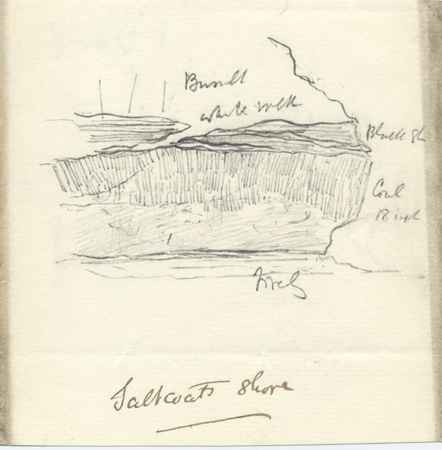 Basalt
white rock
Black sh
Coal
18 inch
Fireclay
Saltcoats shore